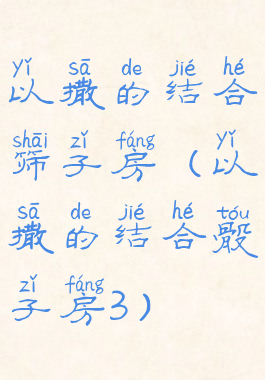 yǐ sā de jié hé
以撒的结合
shāi zǐ fáng yǐ
筛子房（以
sā de jié hé tóu
撒的结合骰
zǐ fáng
子房3）